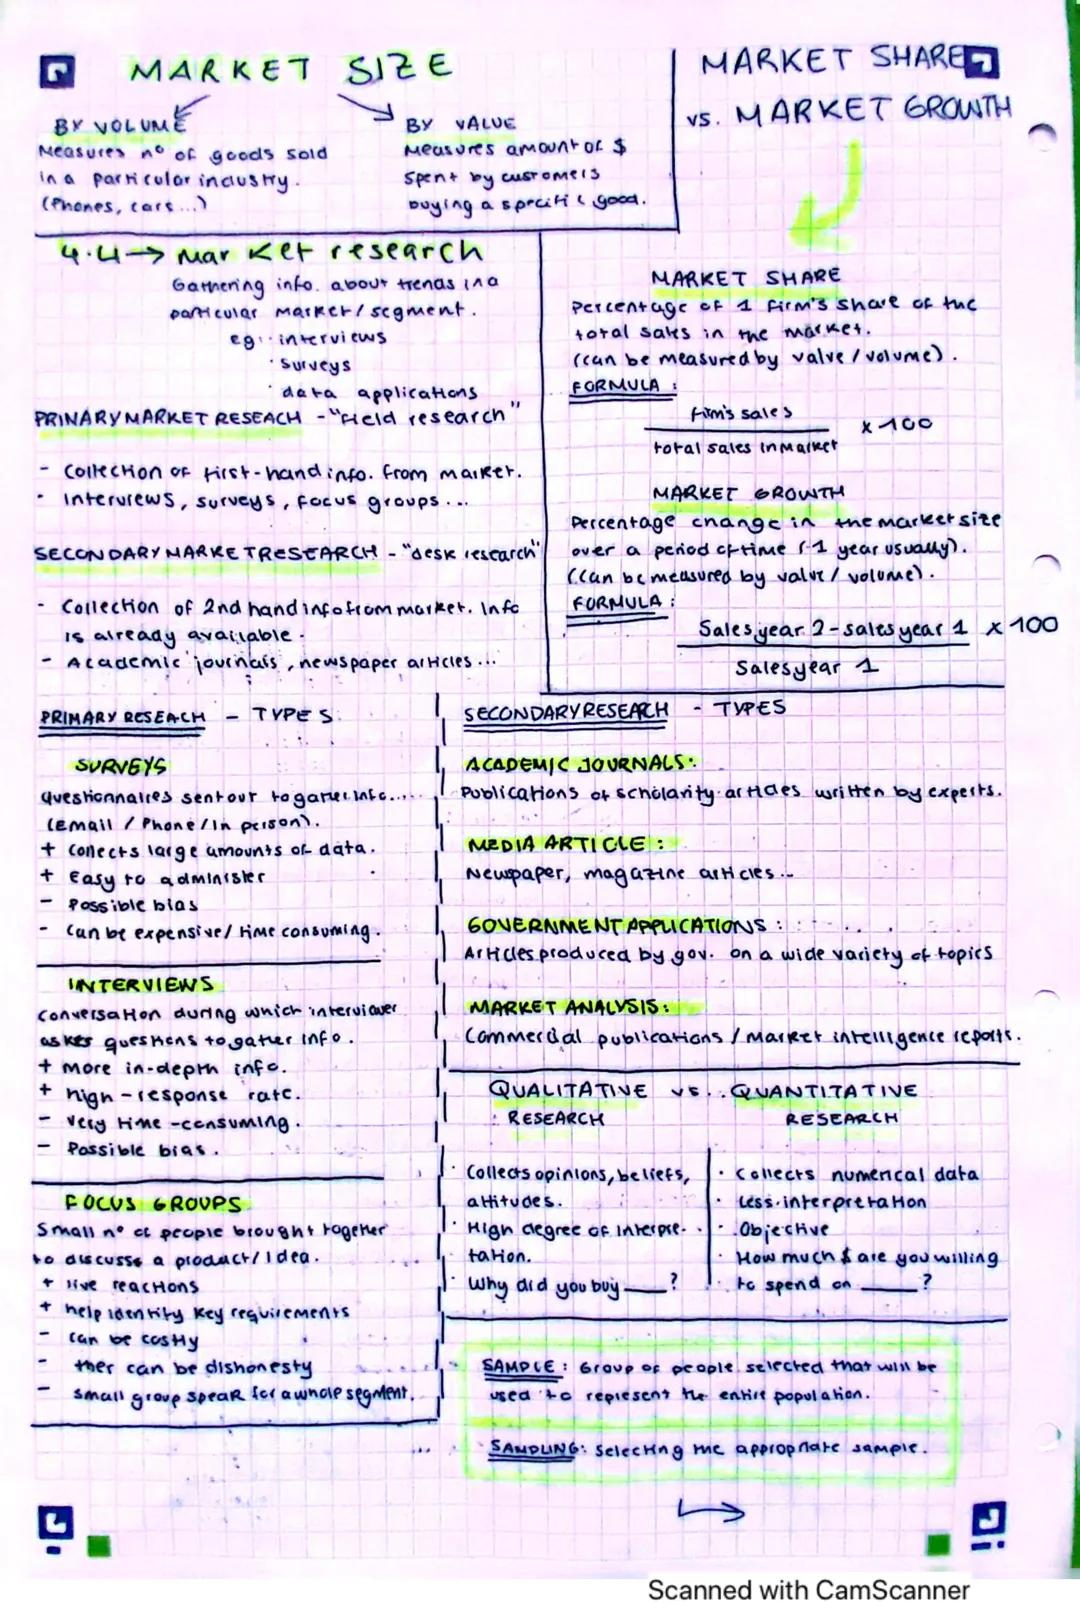 MARKET SIZE
BY VOLUME
Measures nº of goods sold
in a particular industry.
(Phones, cars...)
BY VALUE
Measures amount of $
spent by customers
buying a specific good.
MARKET SHARE
vs. MARKET GROWTH
4.4 → Market research
Gathering info. about trends in a
particular market/segment.
eg: · interviews
· surveys
· data applications
PRINARY MARKET RESEACH - "Field research"
- Collection of first-hand info. from market.
· Interviews, surveys, focus groups...
SECONDARY MARKET RESEARCH - "desk research"
- Collection of 2nd hand info from market. Info
is already available.
- Academic journals, newspaper articles...
MARKET SHARE
Percentage of 1 firm's share of the
total sales in the market.
(can be measured by value/volume).
FORMULA:
firm's sales
x 100
total sales in market
MARKET GROWTH
Percentage change in the market size
over a period of time (-1 year usually).
(can be measured by value/volume).
FORMULA:
Sales year 2 - sales year 1 x 100
Sales year 1
PRIMARY RESEACH - TYPES
SURVEYS
Questionnaires sent out to gather info....
(Email / Phone / In person).
+ Collects large amounts of data.
+ Easy to administer
- Possible bias
- Can be expensive/ time consuming.
INTERVIEWS
Conversation during which interviewer
askes questions to gather info.
+ more in-depth info.
+ high-response rate.
- Very time-consuming.
- Possible bias.
FOCUS GROUPS
Small nº of people brought together
to discusse a product/idea.
+ live reactions
+ help identity key requirements
- can be costly
- ther can be dishonesty
- small group spear for a whole segment.
SECONDARY RESEARCH - TYPES
ACADEMIC JOURNALS:
Publications of scholarity articles written by experts.
MEDIA ARTICLE:
Newspaper, magazine articles...
GOVERNMENT APPLICATIONS:
Articles produced by gov. on a wide variety of topics
MARKET ANALYSIS:
Commercial publications / market intelligence reports.
QUALITATIVE vs. QUANTITATIVE
RESEARCH RESEARCH
· Collects opinions, beliefs,
attitudes.
· High degree of interpre-
tation.
· Why did you buy ___?
· Collects numerical data
· Less interpretation
· Objective
· How much $ are you willing
to spend on ___?
SAMPLE: Group of people selected that will be
used to represent the entire population.
SAMPLING: Selecting the appropriate sample.
Scanned with CamScanner